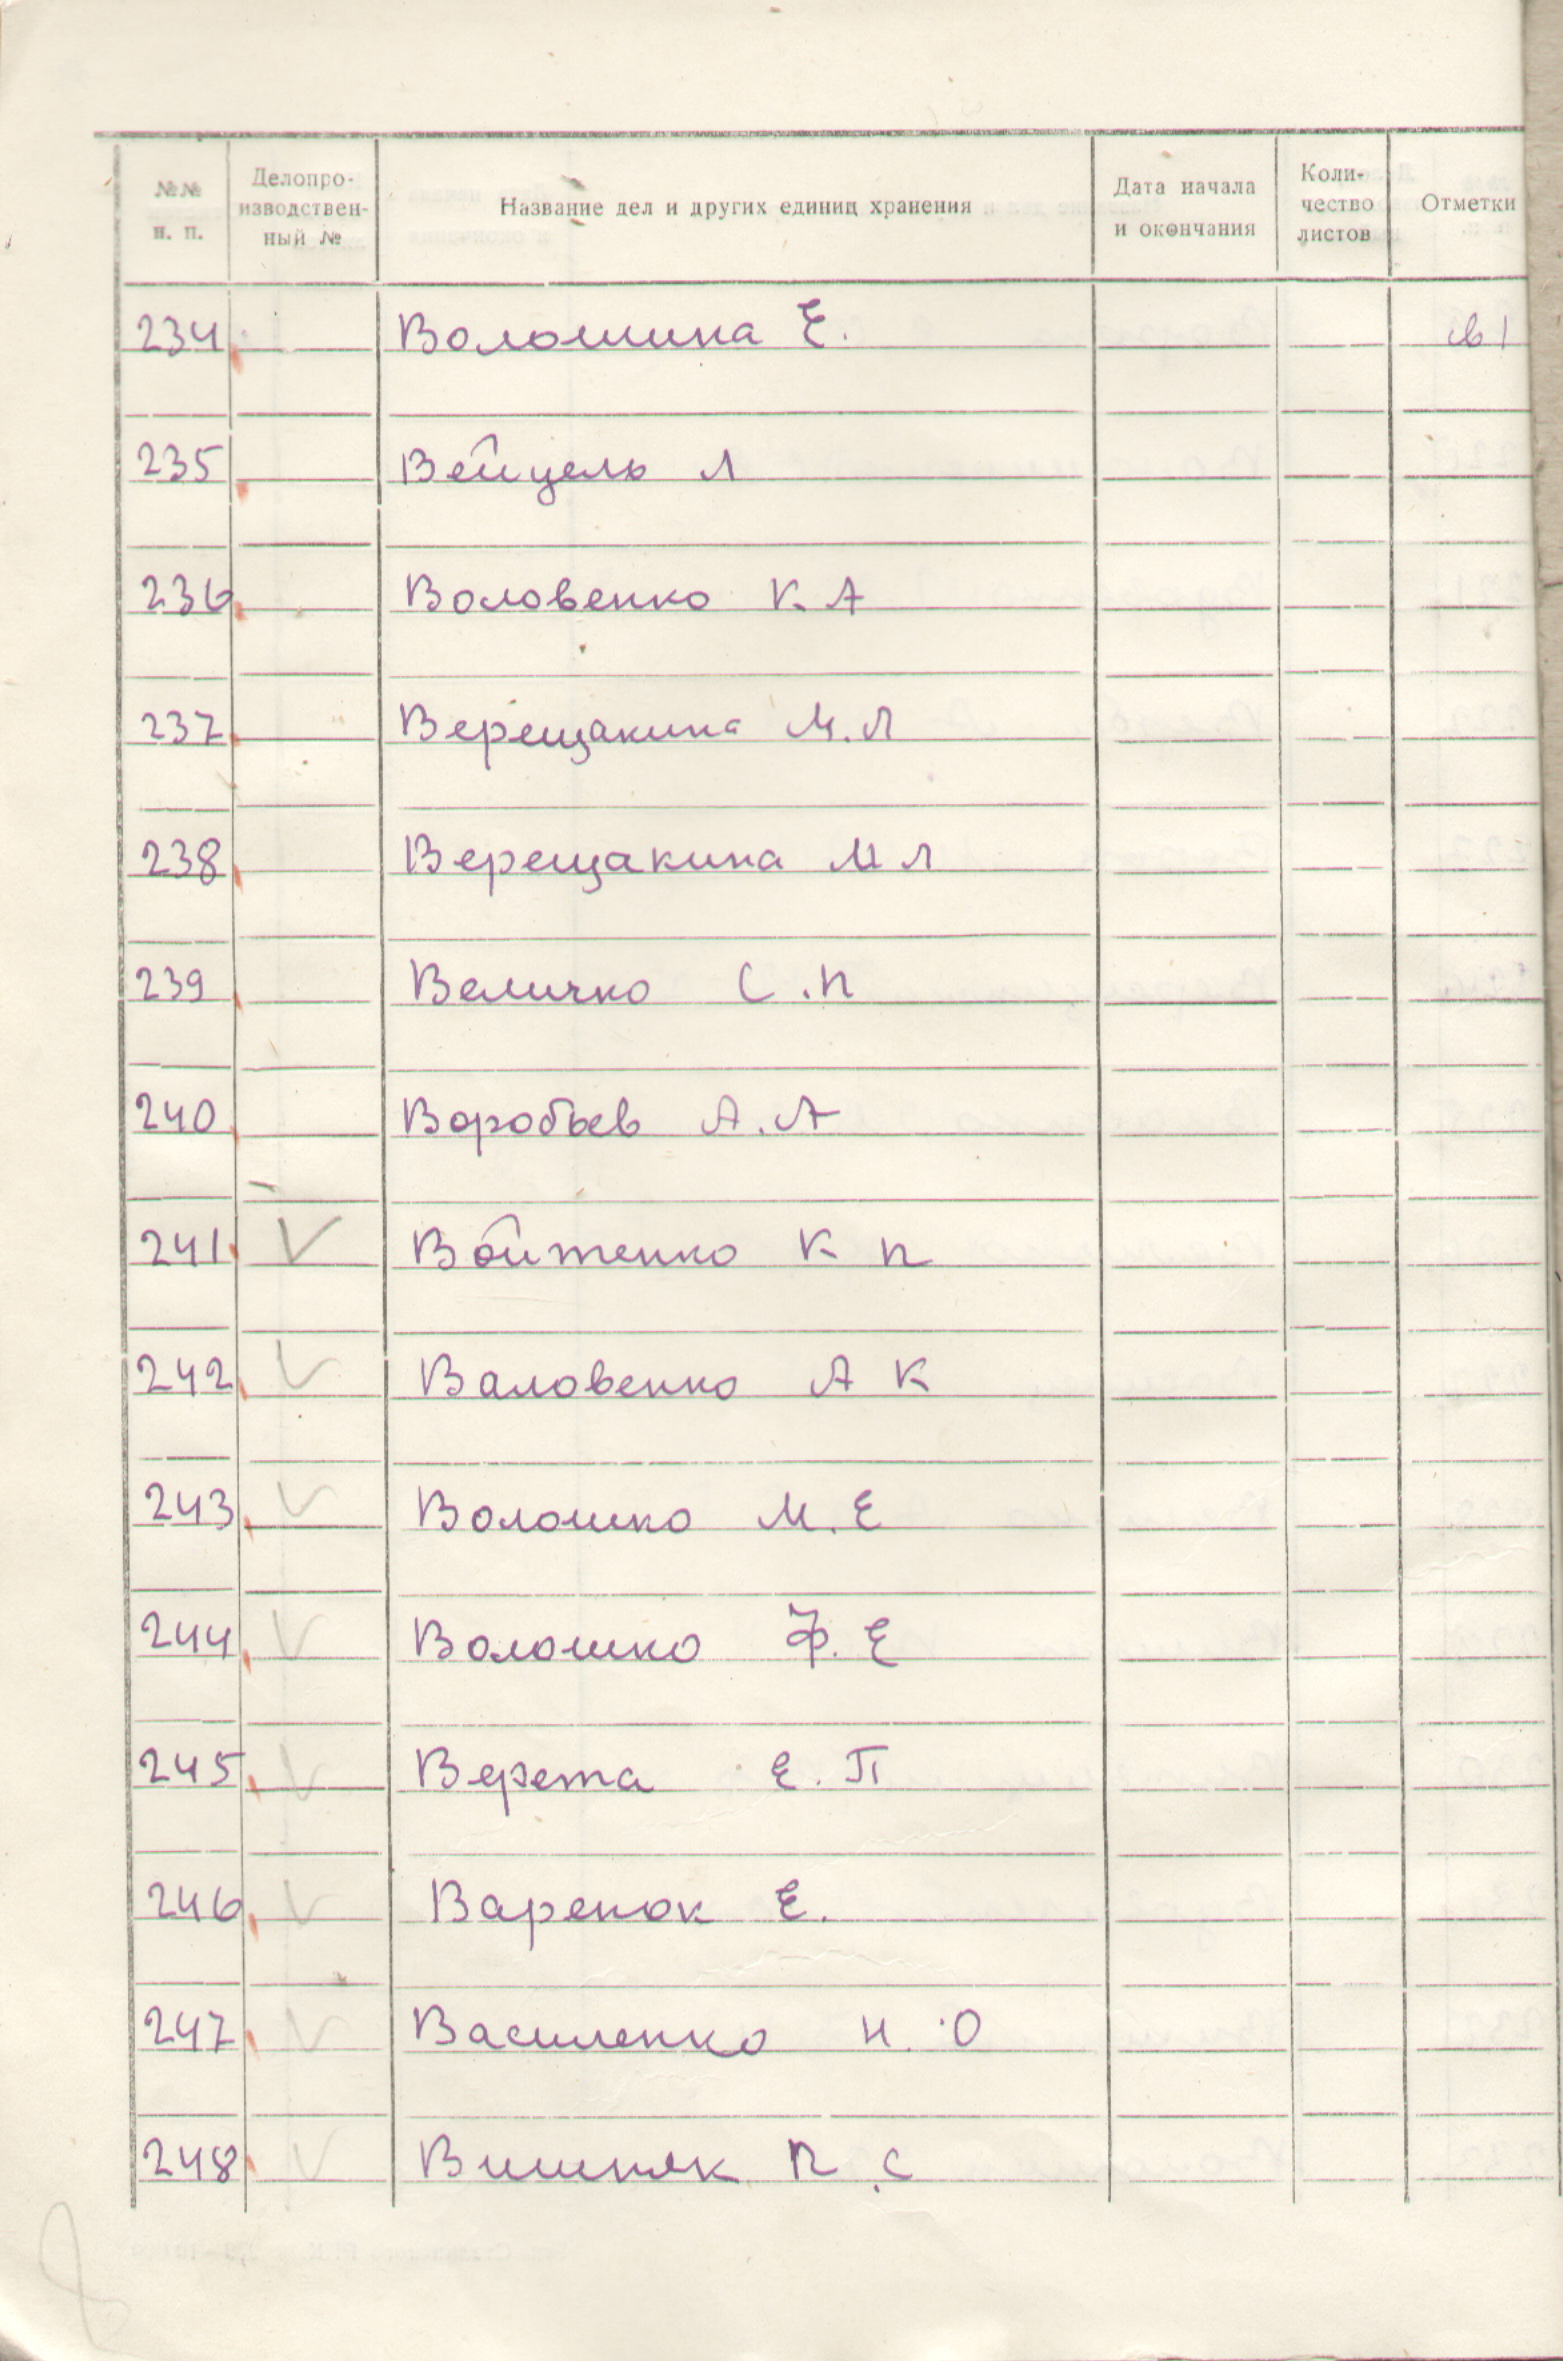 №№ н. п. Делопро-изводствен-ный № Название дел и других единиц хранения Дата начала и окончания Коли-чество листов Отметки
234 Волошина Е.
235 Вейцель Л
236 Воловенко К. А
237 Верещакина М. Л
238 Верещакина М Л
239 Величко С. П
240 Воробьев А. А
241 V Войтенко К П
242 V Валовенко А К
243 V Волошко М. Е
244 V Волошко Ф. Е
245 V Верета Е. П
246 V Варенок Е.
247 V Василенко Н. О
248 V Вишняк П. С